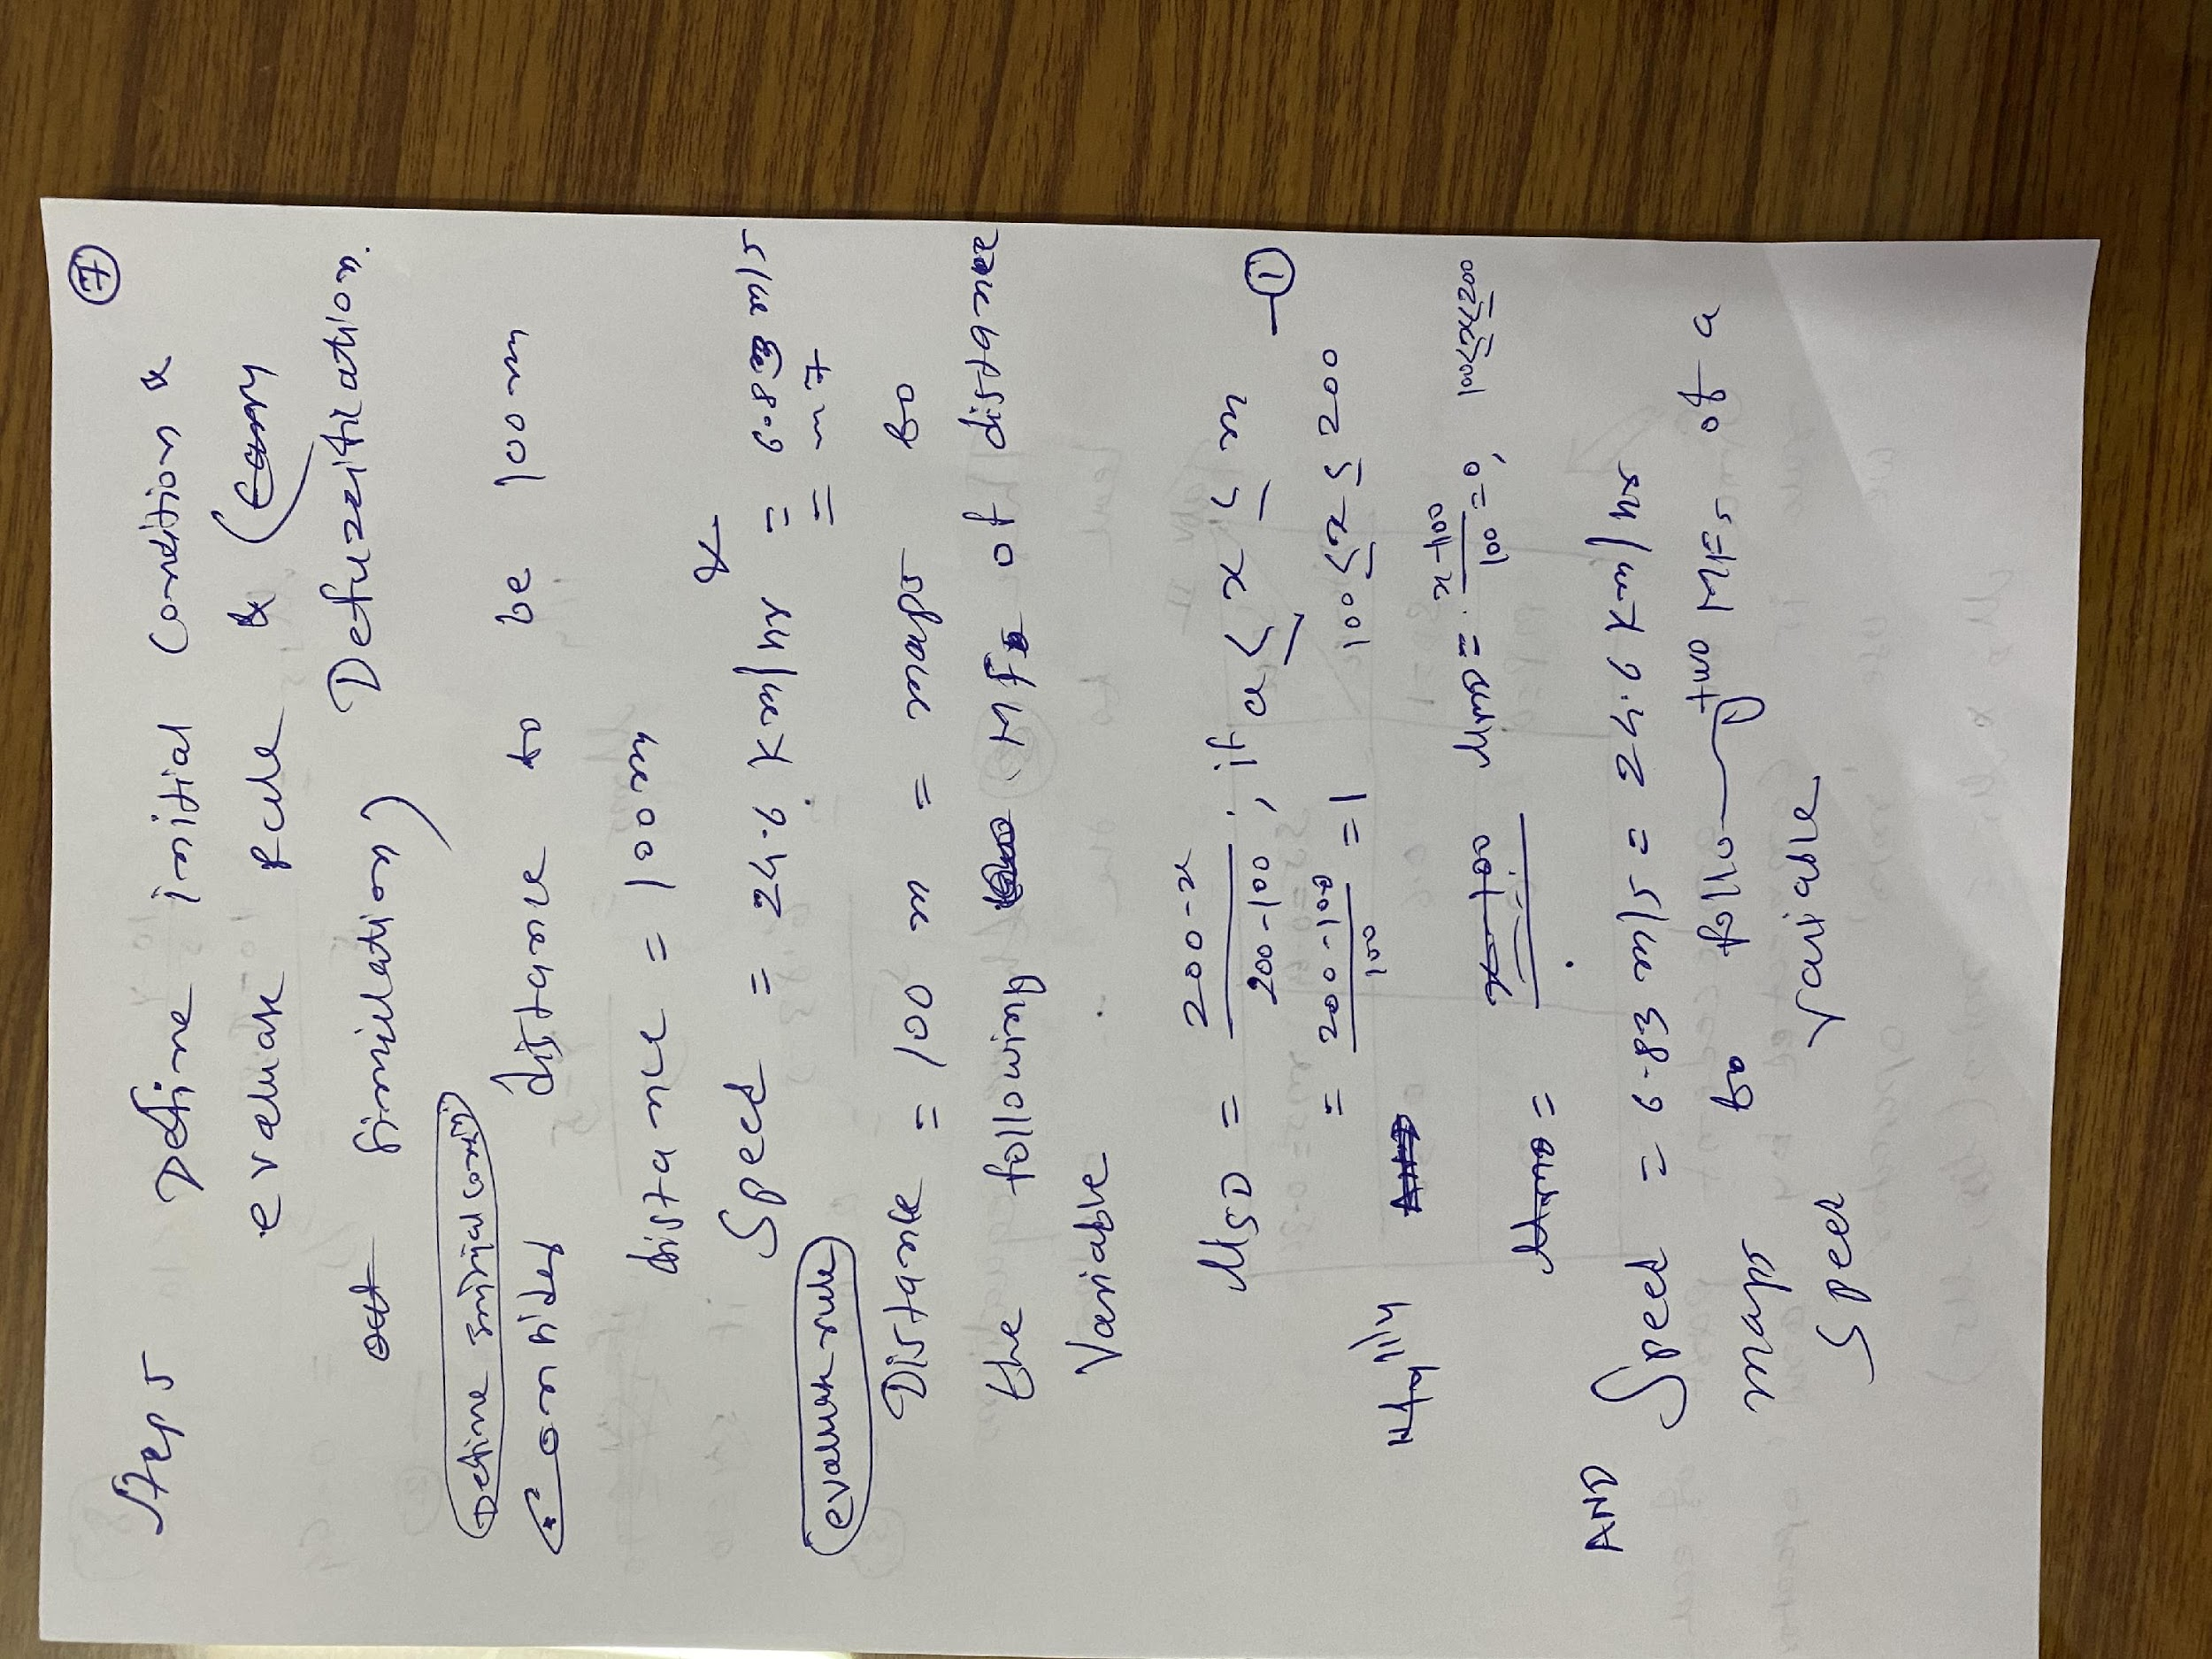 7
Step 5 Define initial condition &
evaluate Rule & (carry
out simulation) Defuzzification.
Define initial condi
* Consider distance to be 100m
distance = 100m &
Speed = 24.6 Km/hr = 6.83 m/s
= m 7
evaluate rule
Distance = 100 m = maps to
the following MFs of distance
Variable
μSD = 200-x / 200-100, if a ≤ x ≤ m — 1
= 200-100 / 100 = 1 100 ≤ x ≤ 200
AND
μMD = x-100 / 100 = 0, 100≤x≤200
μMD = x-100
AND Speed = 6.83 m/s = 24.6 Km/hr
maps to follo two MFs of a
Speed variable